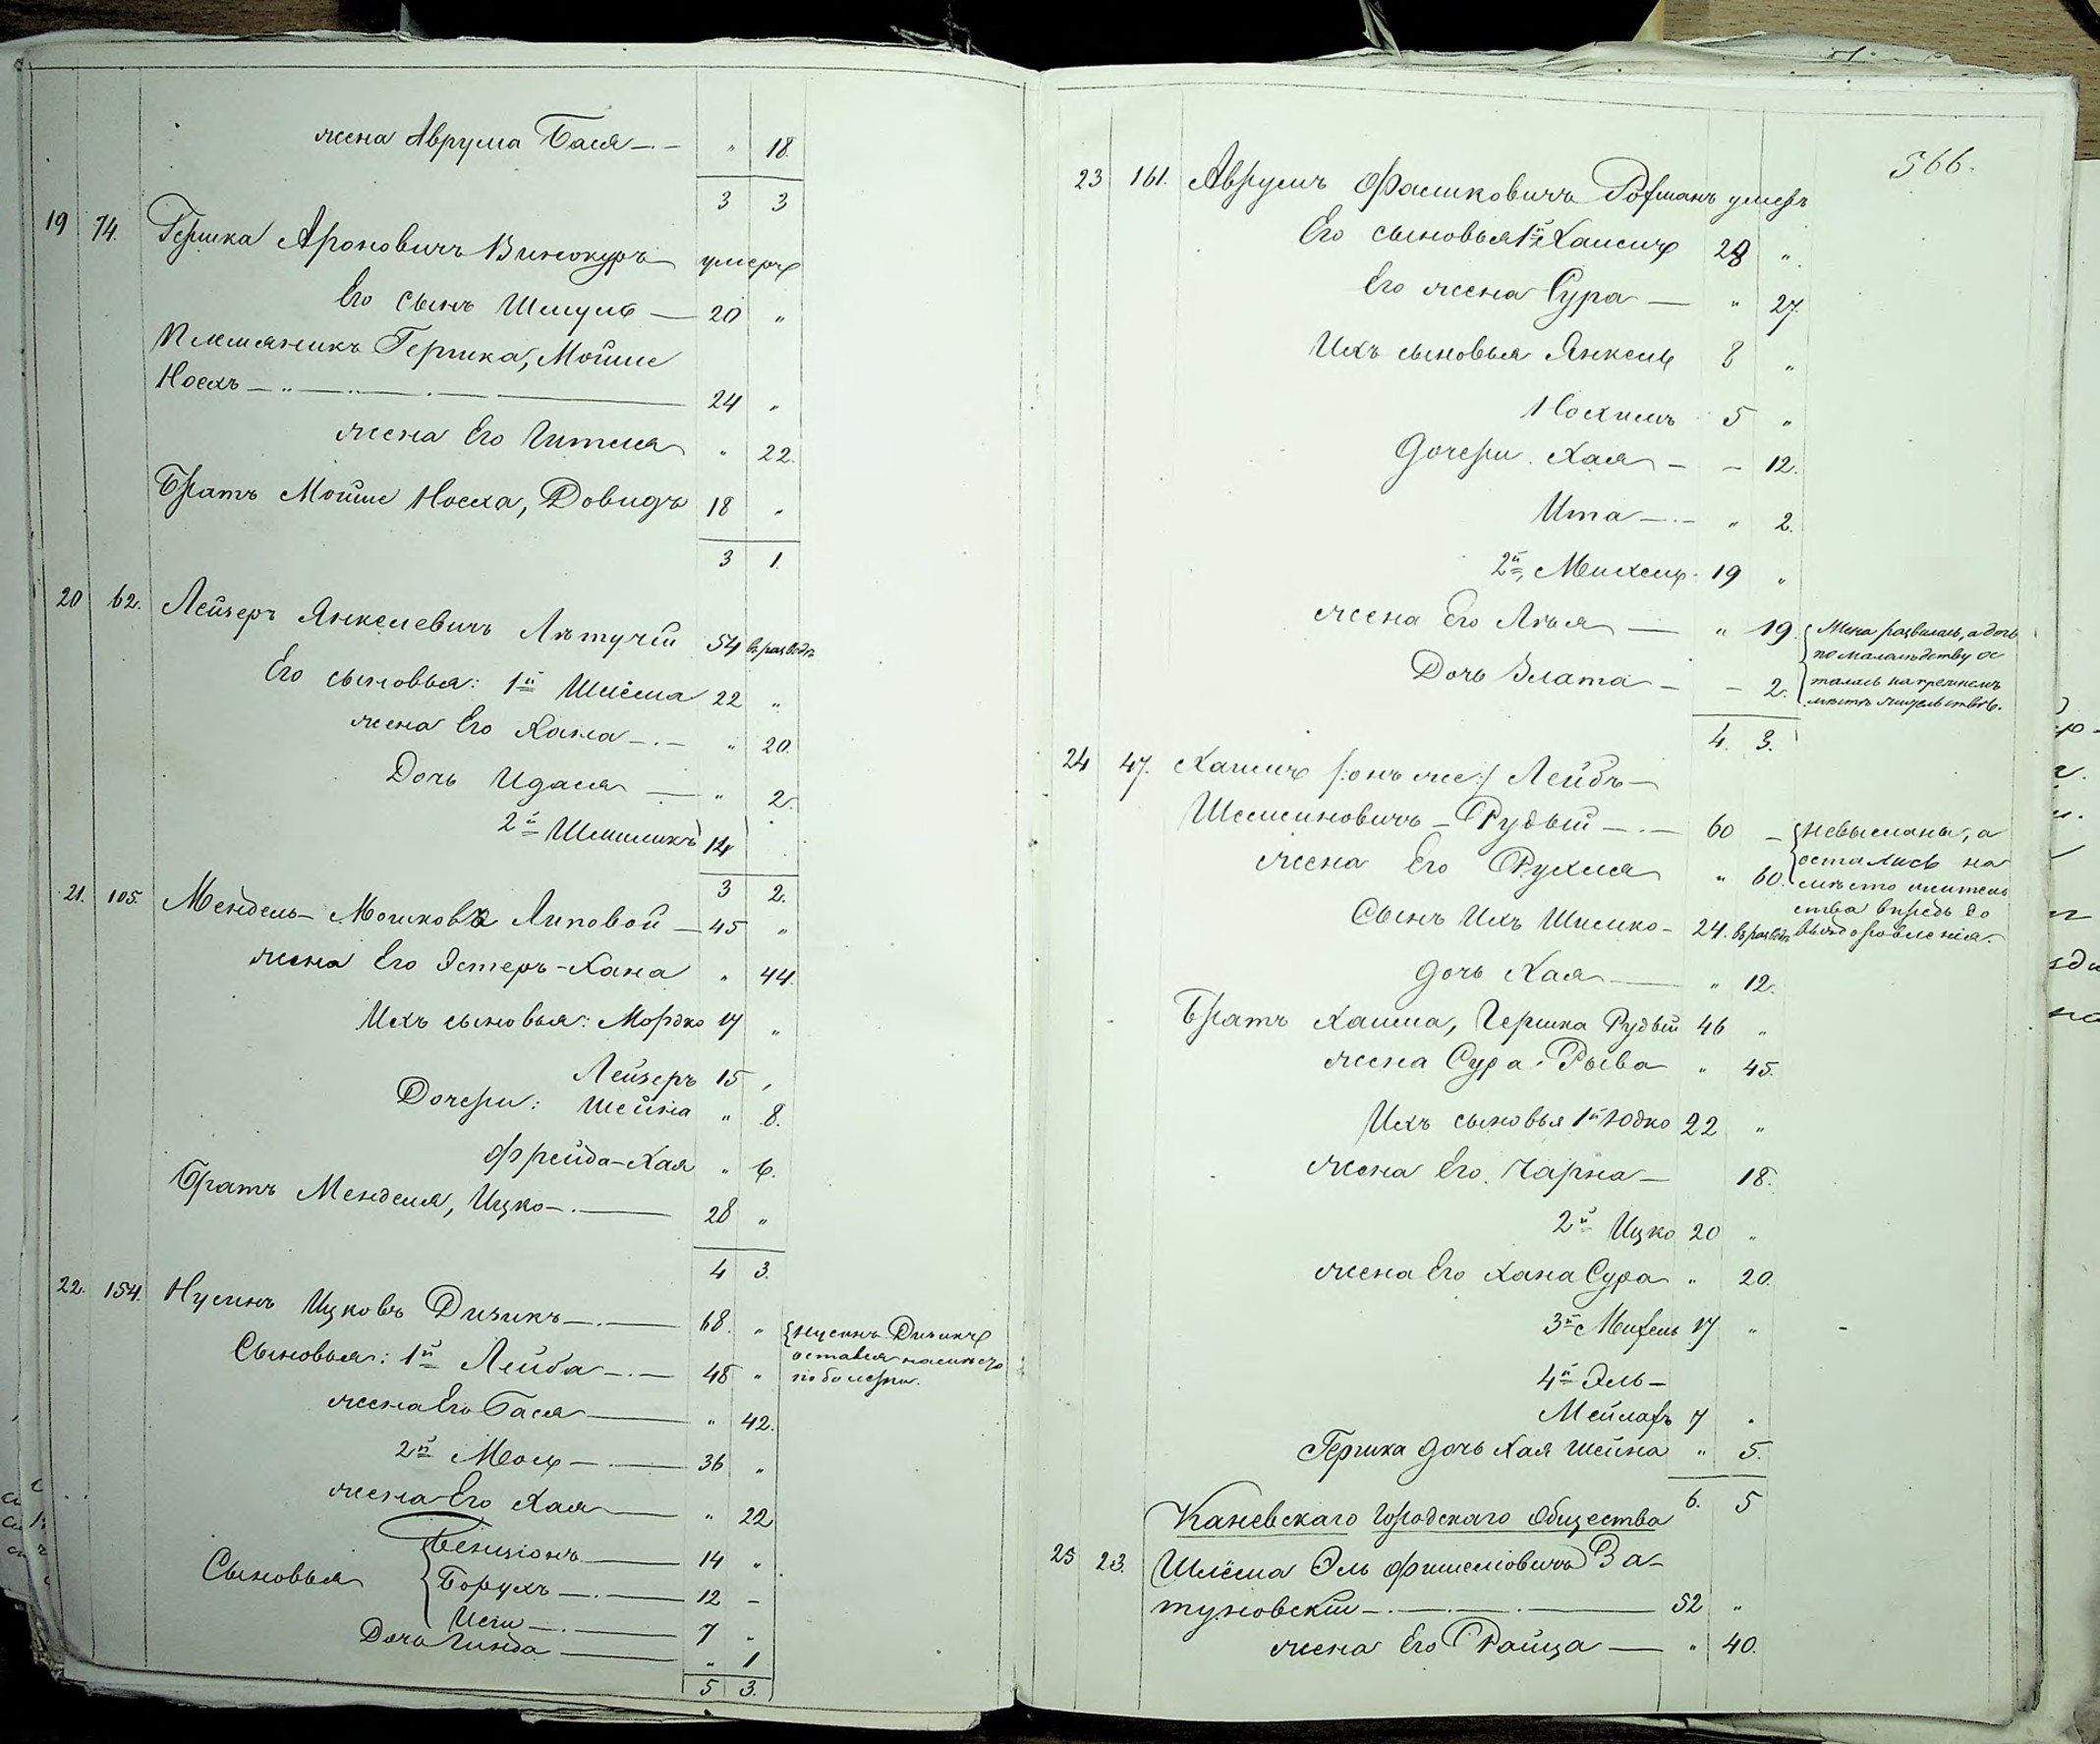 жена Аврума Бася — " 18.
3 3
19 74. Гершка Ароновичъ Винокуръ умеръ
Его сынъ Шмуль — 20 "
Племяникъ Гершка, Мойше
Носхъ — 24 "
жена Его Гитля " 22.
Братъ Мойше Носха, Довидъ 18 "
3 1.
20 62. Лейзеръ Янкелевичъ Лѣтучій 54 въ разводѣ
Его сыновья: 1й Шлёма 22 "
жена Его Хана — " 20.
Дочь Идася — " 2.
2й Шмиликъ 14
3 2.
21. 105. Мендель Мошковъ Липовой — 45 "
жена Его Эстеръ-Хана " 44.
Ихъ сыновья: Мордко 17 "
Лейзеръ 15 "
Дочери: Шейна " 8.
Фрейда-Хая " 6.
Братъ Менделя, Ицко — 28 "
4 3.
22. 154. Нусинъ Ицковъ Дизикъ — 68. "
Нусинъ Дизикъ
остался на мѣстѣ
по болезни.
Сыновья: 1й Лейба — 48 "
жена Его Бася — " 42.
2й Мось — 36 "
жена Его Хая — " 22
Сыновья Бенціонъ — 14 "
Борухъ — 12 –
Исій — 7 "
Дочь Гинда — " 1
5 3.
566.
23 161. Аврумъ Фашковичъ Рофманъ умеръ
Его сыновья 1й Хаимъ 28 "
Его жена Сура — " 27.
Ихъ сыновья Янкель 8 "
Носхимъ 5 "
Дочери Хая — – 12.
Ита — " 2.
2й, Михель 19 "
жена Его Лѣя — " 19.
Дочь Злата — – 2.
Жена развелась, а дочь
по малолѣдству ос
талась на прежнемъ
мѣстѣ жительствѣ.
4. 3.
24 47. Хаимъ /:онъ же:/ Лейбъ —
Шлемновичъ — Рудый — 60 –
жена Его Рухля " 60.
невысланы, а
остались на
мѣсто житель
ства впредь до
выздоровленія.
Сынъ Ихъ Шлемко — 24. въ разводѣ
дочь Хая — " 12.
Братъ Хаима, Гершка Рудый 46 "
жена Сура Рыва " 45.
Ихъ сыновья 1й Юдко 22 "
жена Его Чарна — 18.
2й Ицко 20 "
жена Его Хана Сура " 20.
3й Михель 17 "
4й Эль —
Мейлахъ 7 "
Гершка дочь Хая Шейна " 5.
6. 5
Каневскаго Городскаго Общества
25 23. Шлёма Эль Фишелиовичъ За-
туновскій — 52 "
жена Его Райца — " 40.